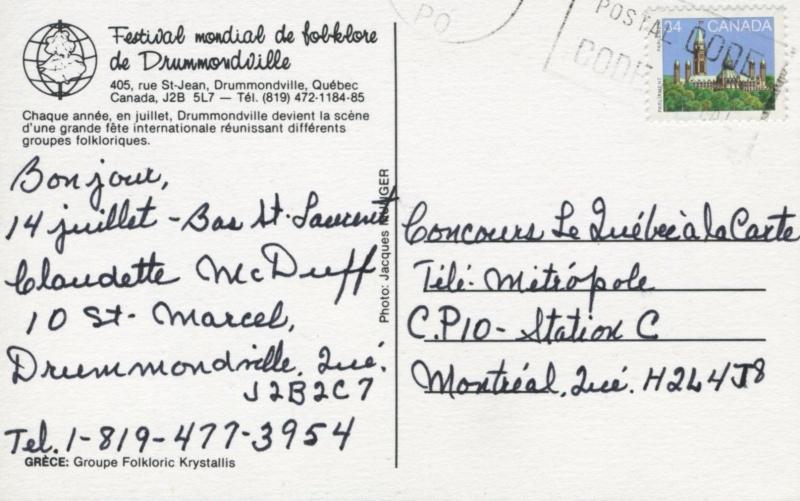 Festival mondial de folklore
de Drummondville
405, rue St-Jean, Drummondville, Québec
Canada, J2B 5L7 — Tél. (819) 472-1184-85
Chaque année, en juillet, Drummondville devient la scène
d'une grande fête internationale réunissant différents
groupes folkloriques.
Bonjour,
14 juillet - Bas St-Laurent
Claudette McDuff
10 St-Marcel,
Drummondville, Qué.
J2B2C7
Tel. 1-819-477-3954
GRÈCE: Groupe Folkloric Krystallis
Photo: Jacques
PO
POSTAL CODE
CODE
34 CANADA
PARLIAMENT
Concours Le Québec à la Carte
Télé-Métrópole
C.P10- Station C
Montréal, Qué. H2L4J8